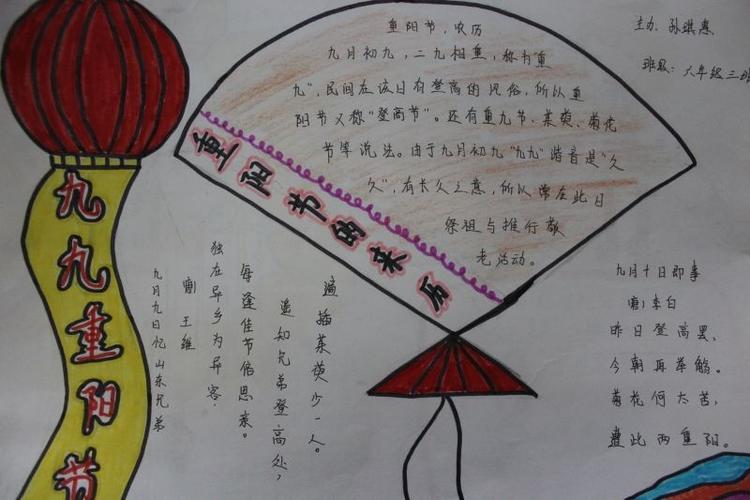 主办：孙琪惠
班级：六年级三班
九九重阳节
重阳节的来历
重阳节，农历
九月初九，二九相重，称为"重
九"，民间在该日有登高的风俗，所以重
阳节又称"登高节"。还有重九节、茱萸、菊花
节等说法。由于九月初九"九九"谐音是"久
久"，有长久之意，所以常在此日
祭祖与推行敬
老活动。
九月九日忆山东兄弟
唐 王维
独在异乡为异客，
每逢佳节倍思亲。
遥知兄弟登高处，
遍插茱萸少一人。
九月十日即事
唐）李白
昨日登高罢，
今朝再举觞。
菊花何太苦，
遭此两重阳。